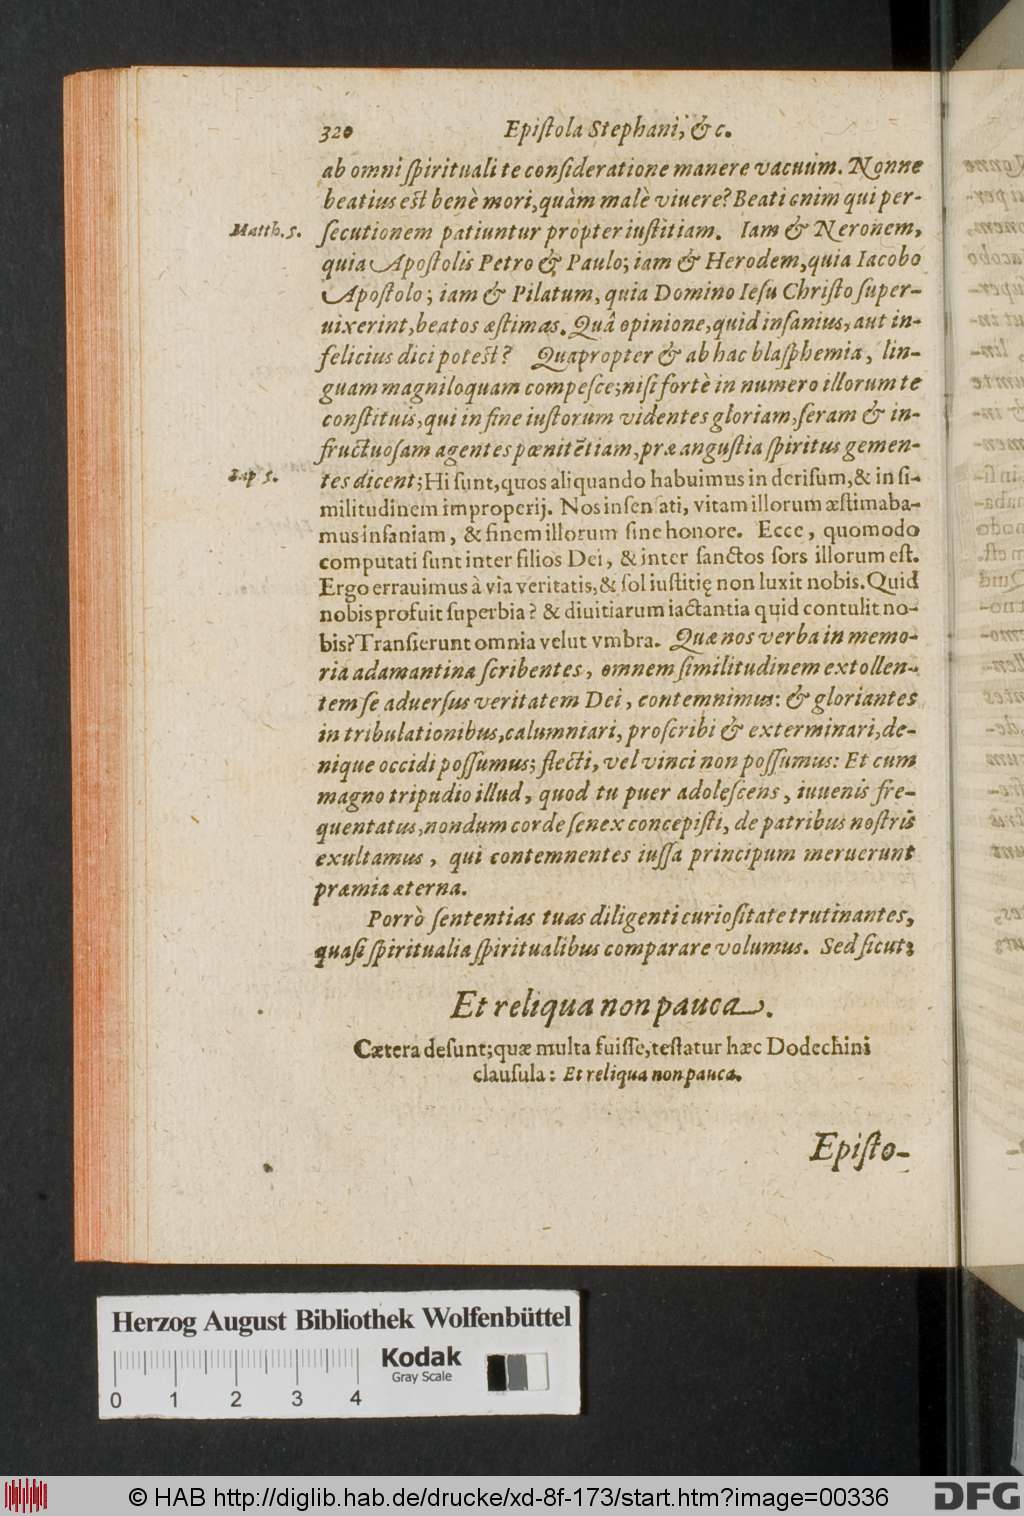 320 Epiſtola Stephani, & c.
ab omni ſpirituali te conſideratione manere vacuum. Nonne
beatius est benè mori, quàm malè viuere? Beati enim qui per-
Matth. 5. ſecutionem patiuntur propter iuſtitiam. Iam & Neronem,
quia Apoſtolis Petro & Paulo; iam & Herodem, quia Iacobo
Apoſtolo; iam & Pilatum, quia Domino Ieſu Chriſto ſuper-
uixerint, beatos æſtimas. Quâ opinione, quid inſanius, aut in-
felicius dici potest? Quapropter & ab hac blaſphemia, lin-
guam magniloquam compeſce; niſi fortè in numero illorum te
conſtituis, qui in fine iuſtorum videntes gloriam, ſeram & in-
fructuoſam agentes pœnitẽtiam, præ anguſtia ſpiritus gemen-
Sap 5. tes dicent; Hi ſunt, quos aliquando habuimus in deriſum, & in ſi-
militudinem improperij. Nos inſenſati, vitam illorum æſtimaba-
mus inſaniam, & finem illorum ſine honore. Ecce, quomodo
computati ſunt inter filios Dei, & inter ſanctos ſors illorum eſt.
Ergo errauimus à via veritatis, & ſol iuſtitię non luxit nobis. Quid
nobis profuit ſuperbia? & diuitiarum iactantia quid contulit no-
bis? Tranſierunt omnia velut vmbra. Quæ nos verba in memo-
ria adamantina ſcribentes, omnem ſimilitudinem extollen-
tem ſe aduerſus veritatem Dei, contemnimus: & gloriantes
in tribulationibus, calumniari, proſcribi & exterminari, de-
nique occidi poſſumus; flecti, vel vinci non poſſumus: Et cum
magno tripudio illud, quod tu puer adoleſcens, iuuenis fre-
quentatus, nondum corde ſenex concepiſti, de patribus noſtris
exultamus, qui contemnentes iuſſa principum meruerunt
præmia æterna.
Porrò ſententias tuas diligenti curioſitate trutinantes,
quaſi ſpiritualia ſpiritualibus comparare volumus. Sed ſicut;
Et reliqua non pauca.
Cætera deſunt; quæ multa fuiſſe, teſtatur hæc Dodechini
clauſula: Et reliqua non pauca.
Epiſto-
Herzog August Bibliothek Wolfenbüttel
Kodak
Gray Scale
0 1 2 3 4
© HAB http://diglib.hab.de/drucke/xd-8f-173/start.htm?image=00336
DFG